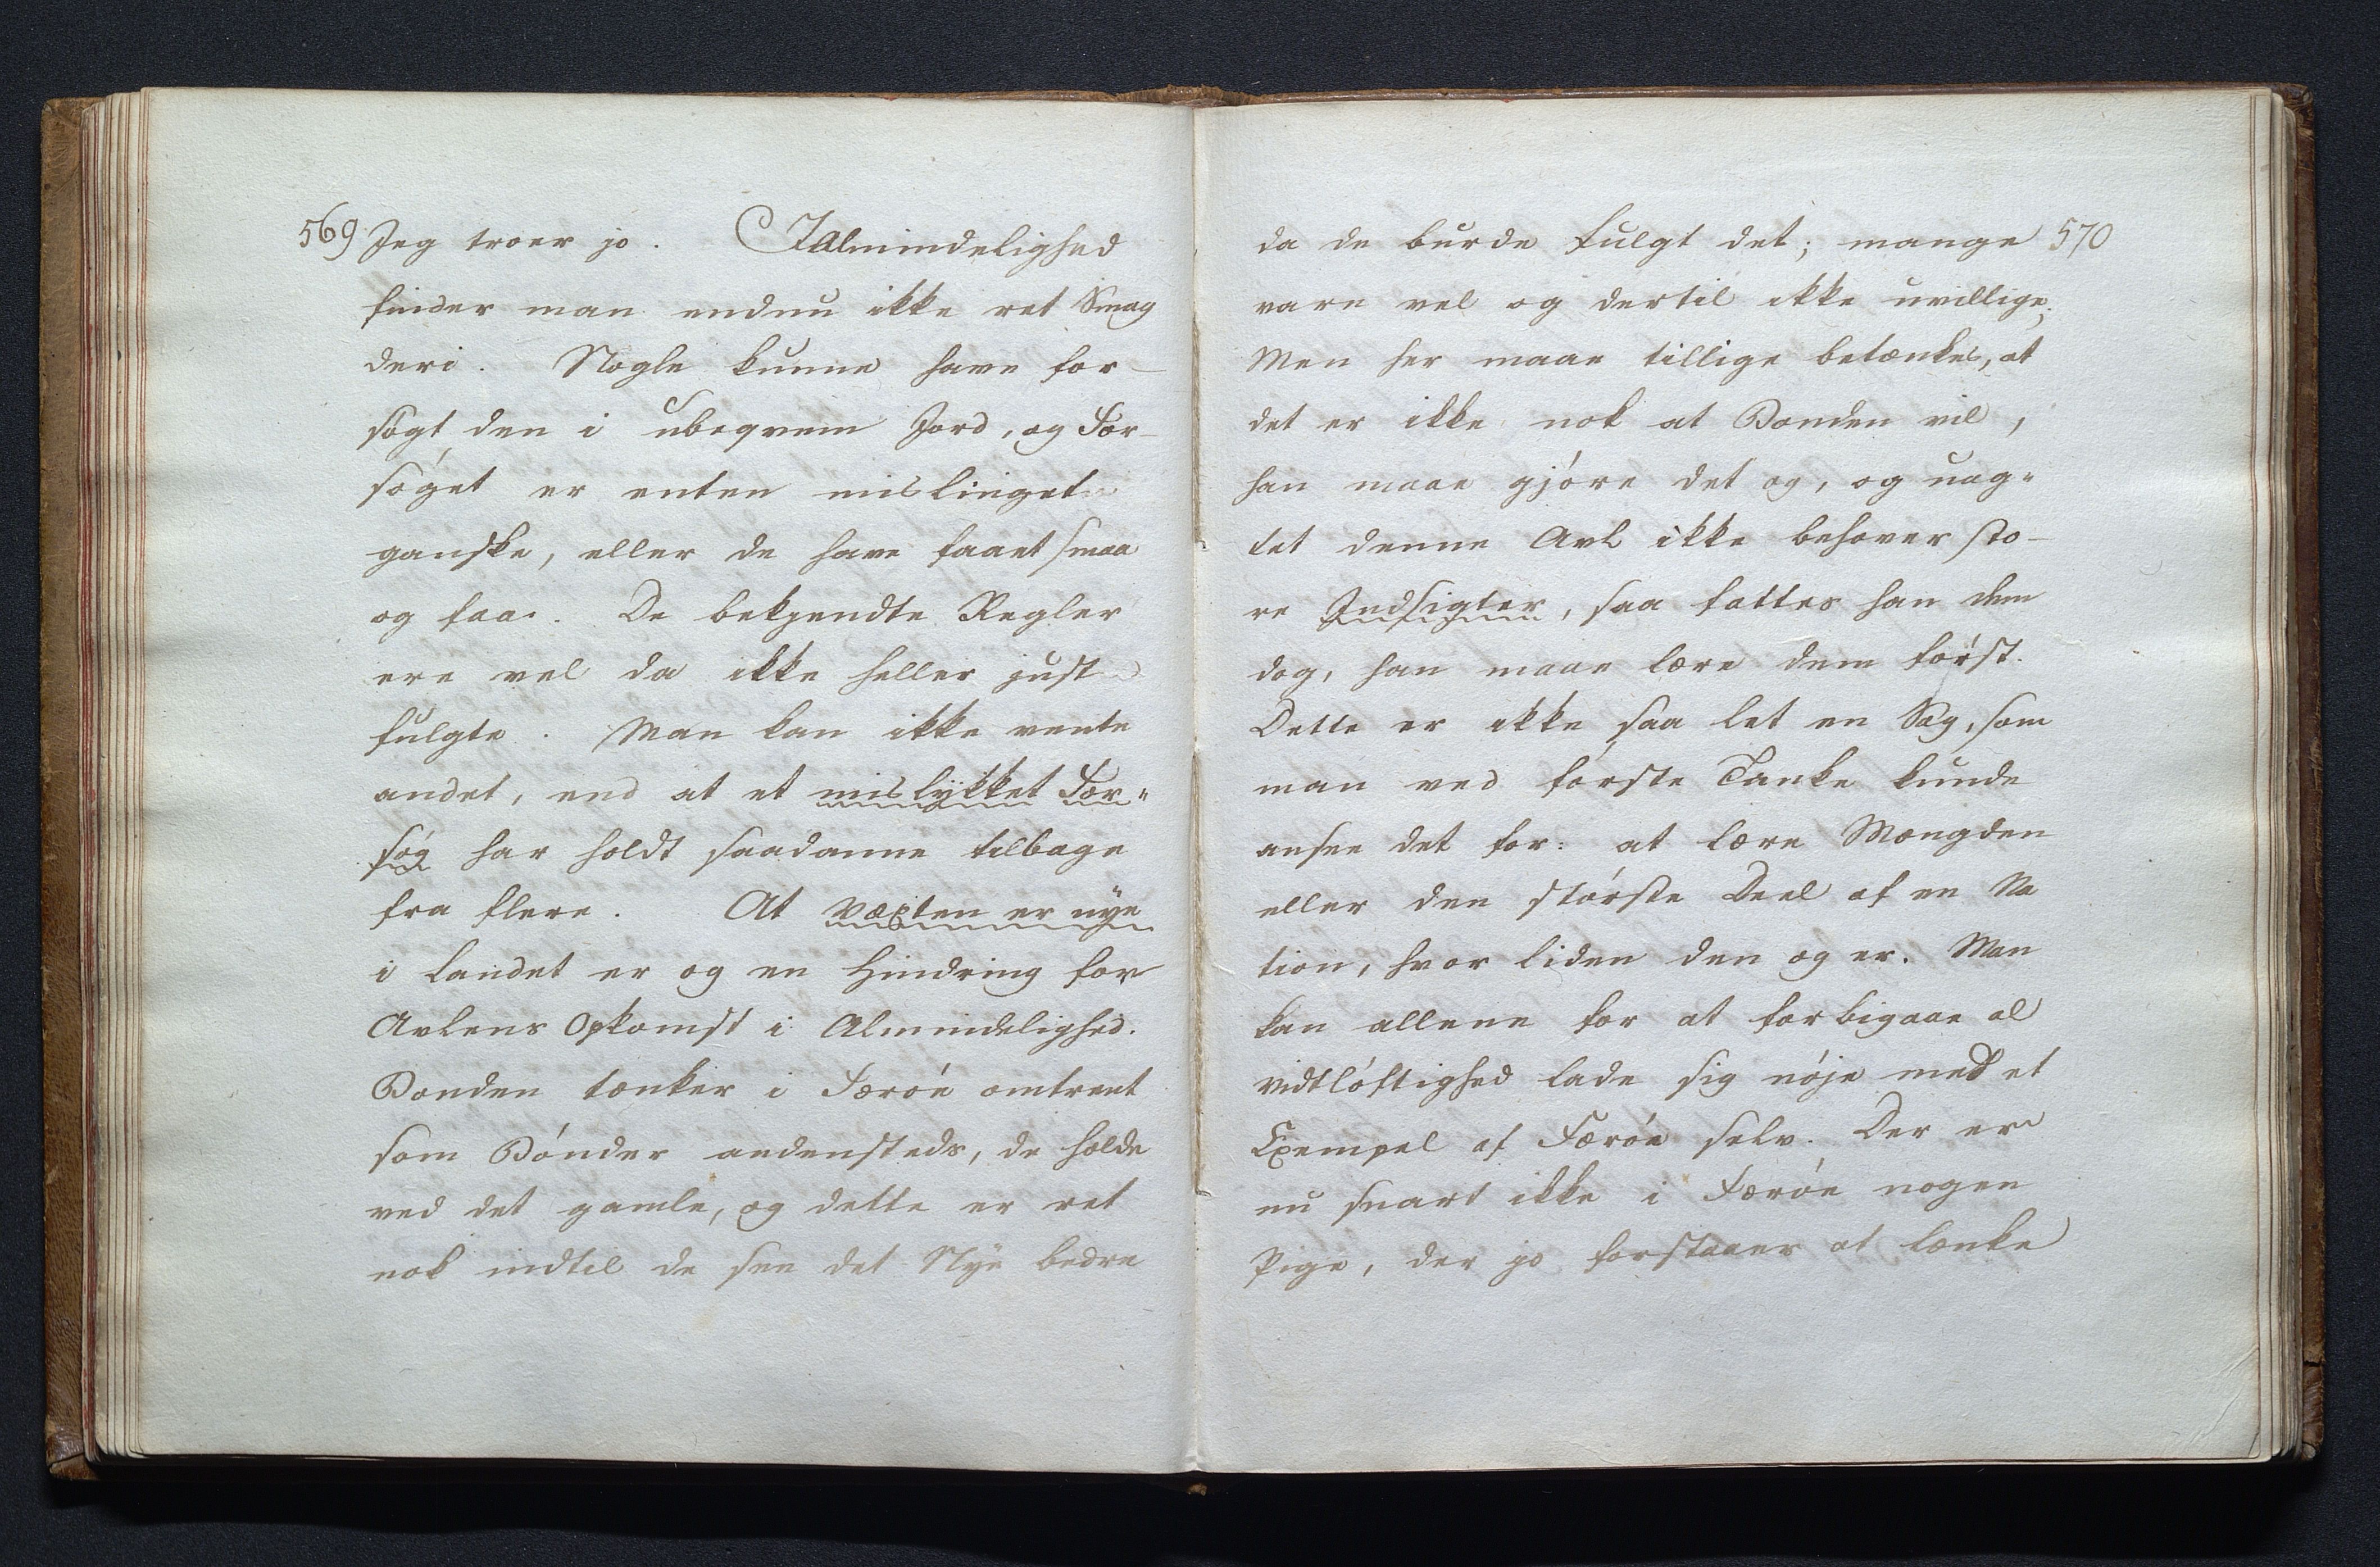 569 Jeg troer jo. I Almindelighed
finder man endnu ikke ret Smag
deri. Nogle kunne have for-
søgt den i ubeqvem Jord, og For-
søget er enten mislinget
ganske, eller de have faaet smaa
og faa. De bekjendte Regler
ere vel da ikke heller just
fulgte. Man kan ikke vente
andet, end at et mislykket For-
søg har holdt saadanne tilbage
fra flere. At Væxten er nye
i Landet er og en Hindring for
Avlens Opkomst i Almindelighed.
Bonden tænker i Færøe omtrent
som Bønder andensteds, de holde
ved det gamle, og dette er ret
nok indtil de see det Nye bedre
da de burde fulgt det; mange 570
vare vel og dertil ikke uvillige.
Men her maae tillige betænkes, at
det er ikke nok at Bonden vil,
han maae gjøre det og, og uag-
tet denne Avl ikke behøver sto-
re Indsigter, saa fattes han dem
dog, han maae lære dem først.
Dette er ikke saa let en Sag, som
man ved første Tanke kunde
ansee det for: at lære Mængden
eller den største Deel af en Na
tion, hvor liden den og er. Man
kan allene for at forbigaae al
vidtløftighed lade sig nøje med et
Exempel af Færøe selv. Der er
nu snart ikke i Færøe nogen
Pige, der jo forstaaer at lænke